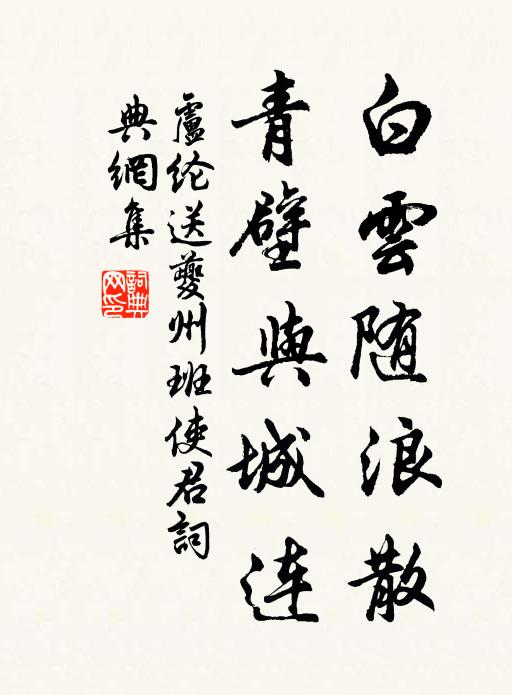 白雲随浪散
青壁與城連
盧纶送夔州班使君詞
典網集
詞典
网印